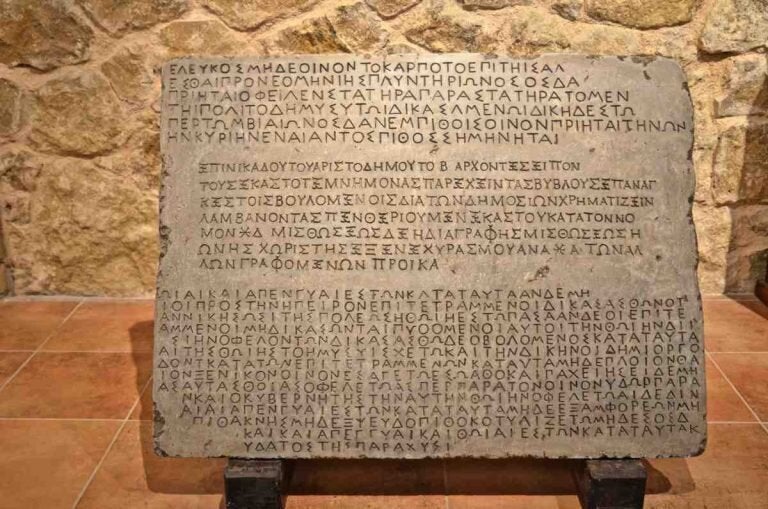 ΕΛΕΥΚΟΣΜΗΔΕΟΙΝΟΝΤΟΚΑΡΠΟΤΟΕΠΙΤΗΙΣΑΛ
ΕΣΘΑΙΠΡΟΝΕΟΜΗΝΙΗΣΠΛΥΝΤΗΡΙΩΝΟΣΟΣΔΑ
ΠΡΙΗΤΑΙΟΦΕΙΛΕΝΣΤΑΤΗΡΑΠΑΡΑΣΤΑΤΗΡΑΤΟΜΕΝ
ΤΗΙΠΟΛΙΤΟΔΗΜΥΣΥΤΩΙΔΙΚΑΣΑΜΕΝΩΙΔΙΚΗΔΕΣΤΩ
ΠΕΡΤΩΜΒΙΑΙΩΝΟΣΔΑΝΕΜΠΙΘΟΙΣΟΙΝΟΝΠΡΙΗΤΑΙΤΗΝΩΝ
ΗΝΚΥΡΙΗΝΕΝΑΙΑΝΤΟΣΠΙΘΟΣΣΗΜΗΝΗΤΑΙ
ΕΠΙΝΙΚΑΔΟΥΤΟΥΑΡΙΣΤΟΔΗΜΟΥΤΟ Β ΑΡΧΟΝΤΕΣΕΙΠΟΝ
ΤΟΥΣΕΚΑΣΤΟΤΕΜΝΗΜΟΝΑΣΠΑΡΕΧΕΙΝΤΑΣΒΥΒΛΟΥΣΕΠΑΝΑΓ
ΚΕΣΤΟΙΣΒΟΥΛΟΜΕΝΟΙΣΔΙΑΤΩΝΔΗΜΟΣΙΩΝΧΡΗΜΑΤΙΖΕΙΝ
ΛΑΜΒΑΝΟΝΤΑΣΠΕΝΘΕΡΙΟΥΜΕΝΕΚΑΣΤΟΥΚΑΤΑΤΟΝΝΟ
ΜΟΝΔΜΙΣΘΩΣΕΩΣΔΕΗΔΙΑΓΡΑΦΗΣΜΙΣΘΩΣΕΩΣΗ
ΩΝΗΣΧΩΡΙΣΤΗΣΕΞΕΝΕΧΥΡΑΣΜΟΥΑΝΑ ΤΩΝΑΛ
ΛΩΝΓΡΑΦΟΜΕΝΩΝ ΠΡΟΙΚΑ
ΩΙΑΙΚΑΙΑΠΕΝΓΥΑΙΕΣΤΩΝΚΑΤΑΤΑΥΤΑΑΝΔΕΜΗ
ΟΙΠΡΟΣΤΗΝΗΠΕΙΡΟΝΕΠΙΤΕΤΡΑΜΜΕΝΟΙΔΙΚΑΣΑΣΘΩΝΟΤ
ΑΜΜΕΝΟΙΜΗΔΙΚΑΣΩΝΤΑΙΠΥΘΟΜΕΝΟΙΑΥΤΟΙΤΗΝΘΩΙΗΝΔΙΙ
ΣΙΗΝΟΦΕΛΟΝΤΩΝΔΙΚΑΣΑΣΘΩΔΕΟΒΟΛΟΜΕΝΟΣΚΑΤΑΤΑΥΤΑ
ΑΙΤΗΣΘΩΙΗΣΤΟΗΜΥΣΥΙΣΧΕΤΩΚΑΙΤΗΝΔΙΚΗΝΟΙΔΗΜΙΟΡΓΟ
ΔΟΝΤΩΝΚΑΤΑΤΩΝΕΠΙΤΕΤΡΑΜΜΕΝΩΝΚΑΤΑΤΑΥΤΑΜΗΔΕΠΛΟΙΟΝΘΑ
ΙΟΝΞΕΝΙΚΟΝΟΙΝΟΝΕΣΑΓΕΤΩΕΣΩΑΘΩΚΑΙΠΑΧΕΙΗΣΕΙΔΕΜΗ
ΑΣΑΥΤΑΣΘΩΙΑΣΟΦΕΛΕΤΩΑΣΠΕΡΠΑΡΑΤΟΝΟΙΝΟΝΥΔΩΡΠΑΡΑ
ΝΚΑΙΟΚΥΒΕΡΝΗΤΗΣΤΗΝΑΥΤΗΝΘΩΙΗΝΟΦΕΛΕΤΩΑΙΔΕΔΙΚ
ΑΙΑΙΑΠΕΝΓΥΑΙΕΣΤΩΝΚΑΤΑΤΑΥΤΑΜΗΔΕΕΞΑΜΦΟΡΕΩΝΜΗ
ΠΙΘΑΚΝΗΣΜΗΔΕΞΨΕΥΔΟΠΙΘΟΚΟΤΥΛΙΖΕΤΩΜΗΔΕΟΣΔ
ΚΑΙΚΑΙΑΠΕΓΓΥΑΙΚΑΙΘΩΙΑΙΕΣΤΩΝΚΑΤΑΤΑΥΤΑΚ
ΥΔΑΤΟΣΤΗΣΠΑΡΑΧΥΣΙ